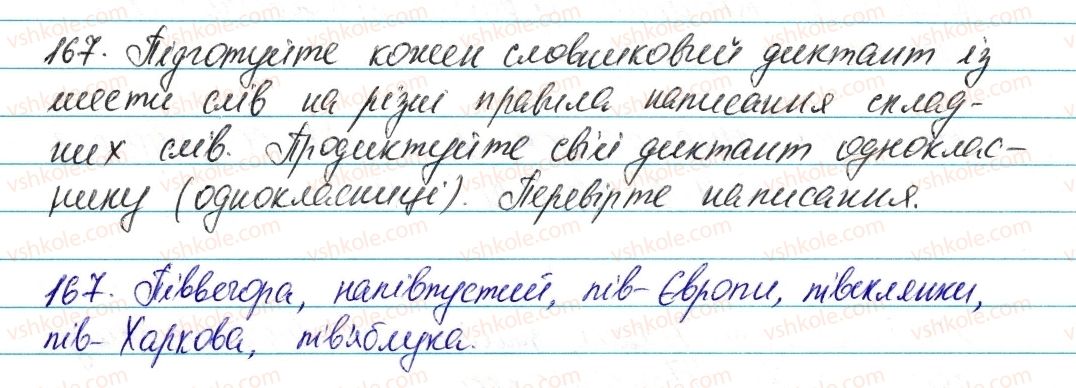 167. Підготуйте кожен словниковий диктант із
шести слів на різні правила написання склад-
них слів. Продиктуйте свій диктант одноклас-
нику (однокласниці). Перевірте написання.
167. Піввечора, напівпустий, пів-Європи, півсклянки,
пів-Харкова, пів'яблука.